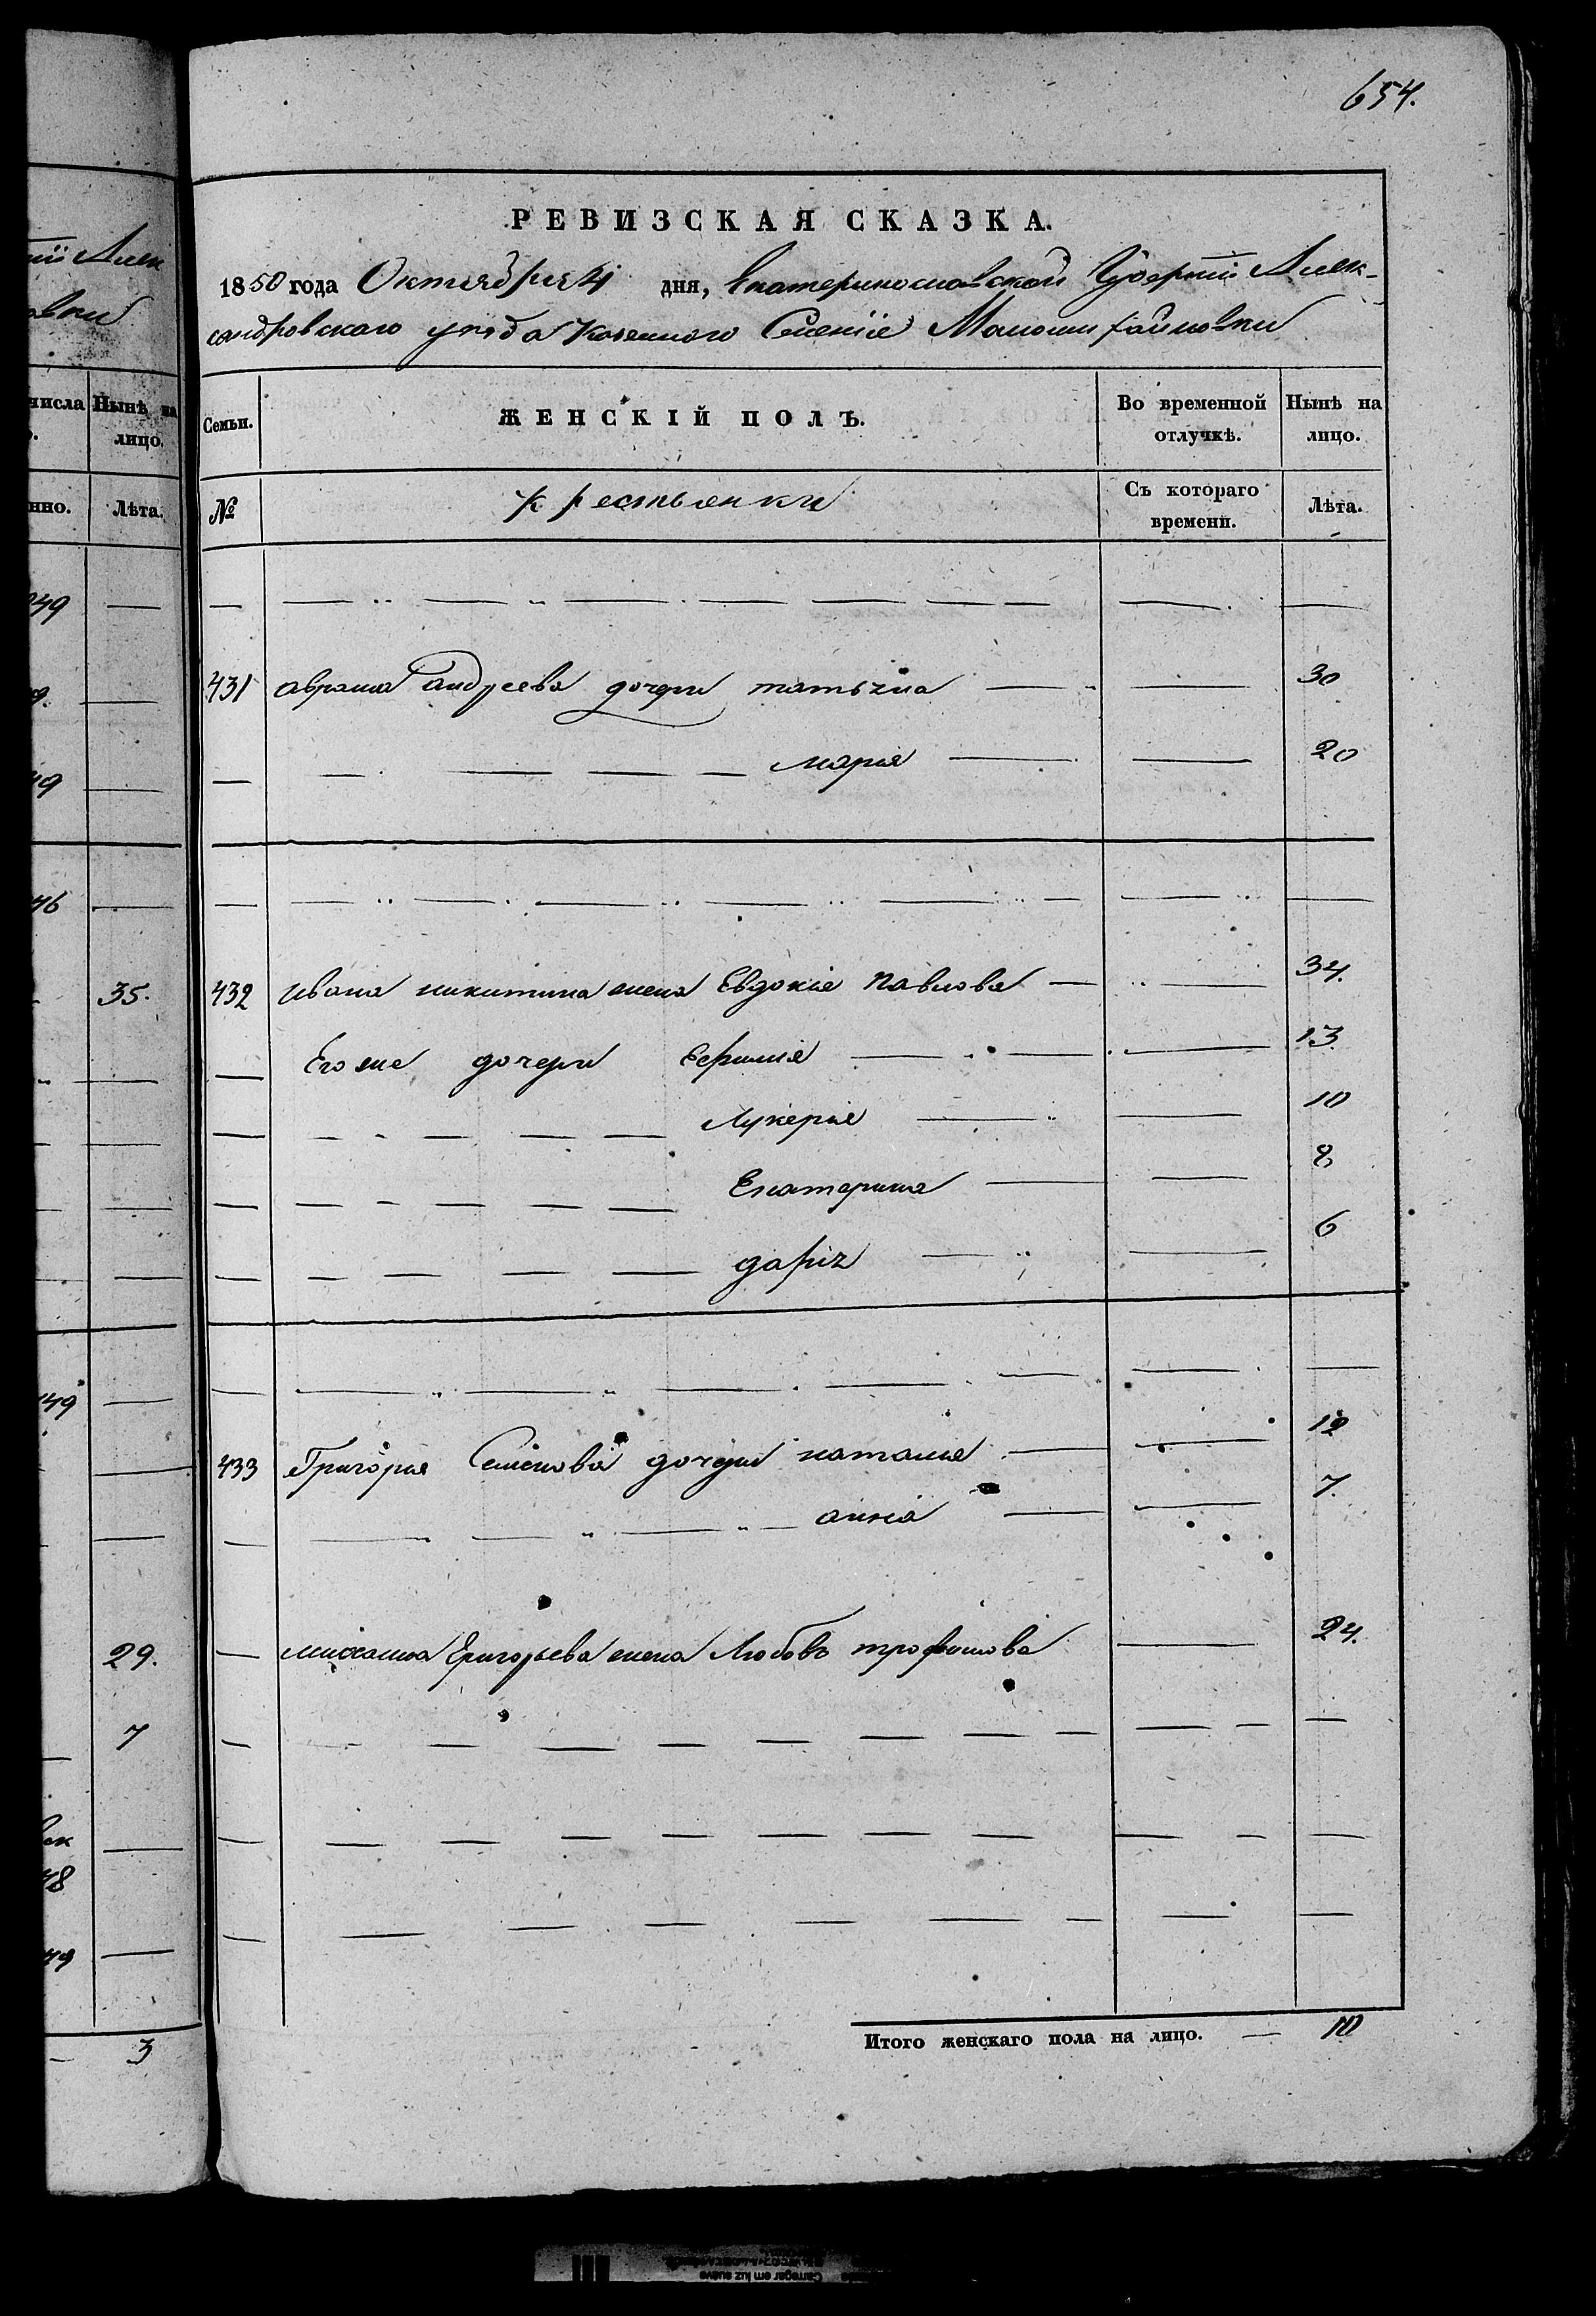 654.
РЕВИЗСКАЯ СКАЗКА.
1850 года Октября 4 дня, Екатеринославской Губернiи Алек-
сандровскаго уезда Казенного Селенiе Маломихайловки
Семьи. ЖЕНСКIЙ ПОЛЪ. Во временной отлучкѣ. Нынѣ на лицо.
№ крестьянки Съ котораго времени. Лѣта.
431 Аврама Андреева дочери татьяна 30
марiя 20
432 Ивана никитина жена Евдокiя Павлова 34.
Его же дочери 13
Лукерiя 10
Екатерина 8
дарiя 6
433 Григорiя Семенова дочери наталiя 12
анна 7.
михаила Григорьева жена Любовь трофимова 24.
Итого женскаго пола на лицо. 10
нiи Алек
овки
числа Нынѣ на лицо.
нно. Лѣта.
49
9.
49
46
35.
149
29.
7
48
49
3
Carregar em luz suave